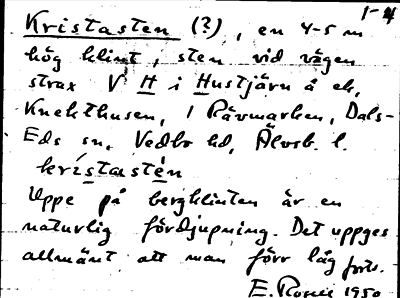 1-4
Kristasten (?), en 4-5 m
hög klint, sten vid vägen
strax V H i Hustjärn å ek,
Knekthusen, 1 Rävmarken, Dals-
Eds sn, Vedbo hd, Älvsb. l.
krístastén
Uppe på bergklinten är en
naturlig fördjupning. Det uppges
allmänt att man förr låg forts.
E. 1950